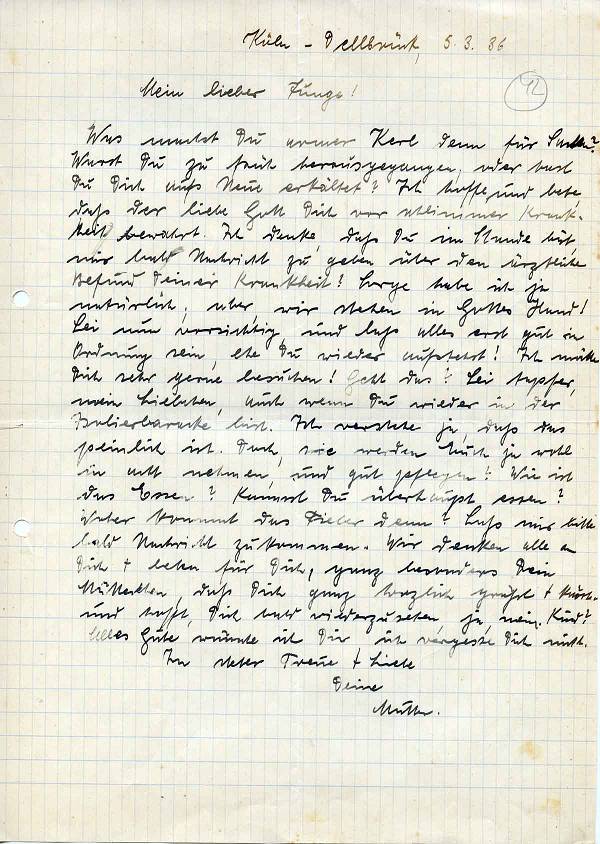 Köln – Dellbrück, 5.3.36
42
Mein lieber Junge!
Was machst Du armer Kerl denn für Sachen?
Warst Du zu früh herausgegangen, oder hast
Du Dich aufs Neue erkältet? Ich hoffe und bete,
daß der liebe Gott Dich vor schlimmer Krank-
heit bewahrt. Ich denke, daß Du im Stande bist,
mir bald Nachricht zu geben über den ärztlichen
Befund Deiner Krankheit! Sorge habe ich ja
natürlich, aber wir stehen in Gottes Hand!
Sei nun vorsichtig und laß alles erst gut in
Ordnung sein, ehe Du wieder aufstehst! Ich möchte
Dich sehr gerne besuchen! Geht das? Sei tapfer,
mein Liebchen, auch wenn Du wieder in der
Isolierbaracke bist. Ich verstehe ja, daß das
peinlich ist. Doch, sie werden Euch ja wohl
in acht nehmen, und gut pflegen? Wie ist
das Essen? Kannst Du überhaupt essen?
Woher kommt das Fieber denn? Laß mir bitte
bald Nachricht zukommen. Wir denken alle an
Dich + beten für Dich, ganz besonders Dein
Mütterchen, daß Dich ganz herzlich grüßt + küßt
und hofft, Dich bald wiederzusehen ja mein Kind?
Alles Gute wünsche ich Dir ich vergesse Dich nicht.
In steter Treue + Liebe
Deine
Mutter.